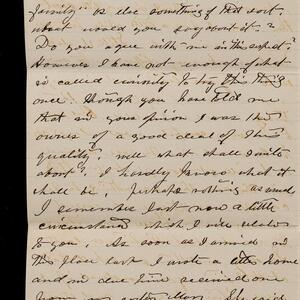 family" or else something of that sort.
what would you say about it?
Do you agree with me in this respect?
However I have not enough of what
is called curiosity to try this thing
once. though you have told me
that in your opinion I was the
owner of a good deal of this
quality. well what shall I write
about? I hardly know what it
shall be, perhaps nothing as usual
I remember just now a little
circumstance which I will relate
to you. As soon as I arrived in
this place last I wrote a letter home
and in due time received one
from my